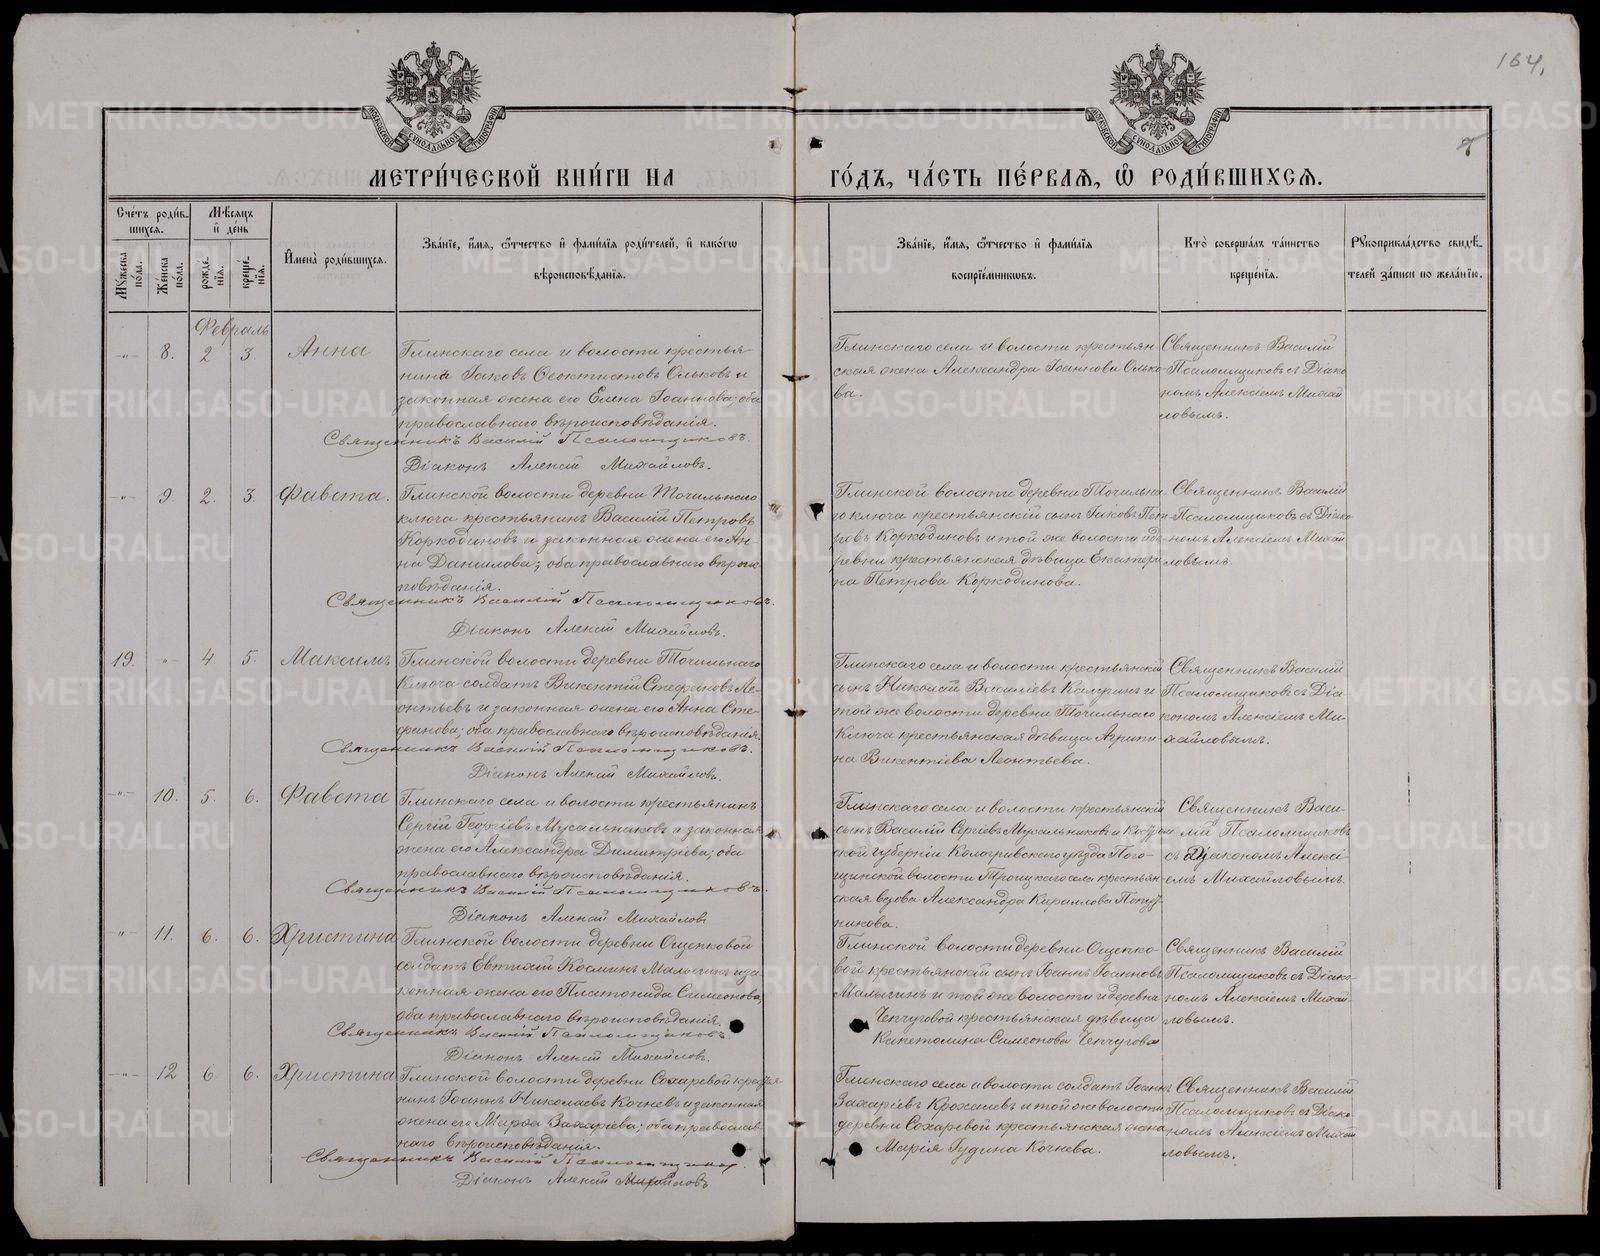 164.
МЕТРИ́ЧЕСКОЙ КНИ́ГИ НА
ГО́ДЪ, ЧА́СТЬ ПЕ́РВАѦ, Ѽ РОДИ́ВШИХСѦ.
Сче́тъ роди́в-
шихся.
Мѣ́сяцъ
и҆ де́нь
Му́жеска
пола.
Же́нска
пола.
рожде́-
нїя.
креще́-
нїя.
И҆мена̀ роди́вшихся.
Зва́нїе, и҆́мя, ѻ҆́тчество и҆ фами́лїя роди́телей, и҆ како́гѡ
вѣроисповѣ́данїя.
Зва́нїе, и҆́мя, ѻ҆́тчество и҆ фами́лїя
воспрїе́мниковъ.
Кто̀ соверша́лъ та́инство
креще́нїя.
Рꙋкоприкла́дство свидѣ́-
телей за́писи по жела́нїю.
Февраль
-„- 8. 2 3. Анна
Глинскаго села и волости крестья-
нина Іаковъ Ѳеоктистовъ Ольковъ и
законная жена его Елена Іоаннова; оба
православнаго вѣроисповѣданія.
Священникъ Василій Псаломщиковъ.
Діаконъ Алексій Михайловъ.
Глинскаго села и волости крестьян-
ская жена Александра Іоаннова Олько-
ва.
Священникъ Василій
Псаломщиковъ съ Діако-
номъ Алексіемъ Михай
ловымъ.
-„- 9. 2. 3. Фавста.
Глинской волости деревни Точильнаго
ключа крестьянинъ Василій Петровъ
Коркодиновъ и законная жена его Ан-
на Данилова; оба православнаго вѣроис-
повѣданія.
Священникъ Василій Псаломщиковъ.
Діаконъ Алексій Михайловъ.
Глинской волости деревни Точильна-
го ключа крестьянскій сынъ Іаковъ Пет-
ровъ Коркодиновъ и той же волости и де-
ревни крестьянская дѣвица Екатери-
на Петрова Коркодинова.
Священникъ Василій
Псаломщиковъ съ Діако-
номъ Алексіемъ Михай
ловымъ.
19. -„- 4 5. Максимъ
Глинской волости деревни Точильнаго
Ключа солдатъ Викентій Стефановъ Ле-
онтьевъ и законная жена его Анна Сте-
фанова; оба православнаго вѣроисповѣданія.
Священникъ Василій Псаломщиковъ.
Діаконъ Алексій Михайловъ.
Глинскаго села и волости крестьянскій
сынъ Николай Васильевъ и
той же волости деревни Точильнаго
Ключа крестьянская дѣвица Агрипи-
на Викентіева Леонтьева.
Священникъ Василій
Псаломщиковъ съ Діа
кономъ Алексіемъ Ми-
хайловымъ.
-„- 10. 5. 6. Фавста
Глинскаго села и волости крестьянинъ
Сергій Георгіевъ Мусальниковъ и законная
жена его Александра Димитріева; оба
православнаго вѣроисповѣданія.
Священникъ Василій Псаломщиковъ.
Діаконъ Алексій Михайловъ
Глинскаго села и волости крестьянскій
сынъ Василій Сергіевъ Мусальниковъ и Костром-
ской губерніи Кологривскаго уѣзда
волости Троицкаго села крестьян-
ская вдова Александра Кириллова Попуд-
никова.
Священникъ Васи-
лій Псаломщиковъ
съ Діакономъ Алексі-
емъ Михайловымъ.
-„- 11. 6. 6. Христина
Глинской волости деревни Ощепковой
солдатъ Евтихій Косминъ Малыгинъ и за-
конная жена его Платонида Симеонова;
оба православнаго вѣроисповѣданія.
Священникъ Василій Псаломщиковъ.
Діаконъ Алексій Михайловъ.
Глинской волости деревни Ощепко-
вой крестьянскій сынъ Іоаннъ Іоанновъ
Малыгинъ и той же волости и деревни
Чепчуговой крестьянская дѣвица
Капетолина Симеонова Чепчугова
Священникъ Василій
Псаломщиковъ съ Діако-
номъ Алексіемъ Михай-
ловымъ.
-„- 12 6 6. Христина
Глинской волости деревни Сохаревой крестья-
нинъ Іоаннъ Николаевъ Кочневъ и законная
жена его Марѳа Захаріева; оба православ-
наго вѣроисповѣданія.
Священникъ Василій
Діаконъ Алексій Михайловъ
Глинскаго села и волости солдатъ Іоаннъ
Захаріевъ Крохалевъ и той же волости
деревни Сохаревой крестьянская жена
Марія Гудина Кочнева.
Священникъ Василій
Псаломщиковъ съ Діако-
номъ Алексіемъ Михай
ловымъ.